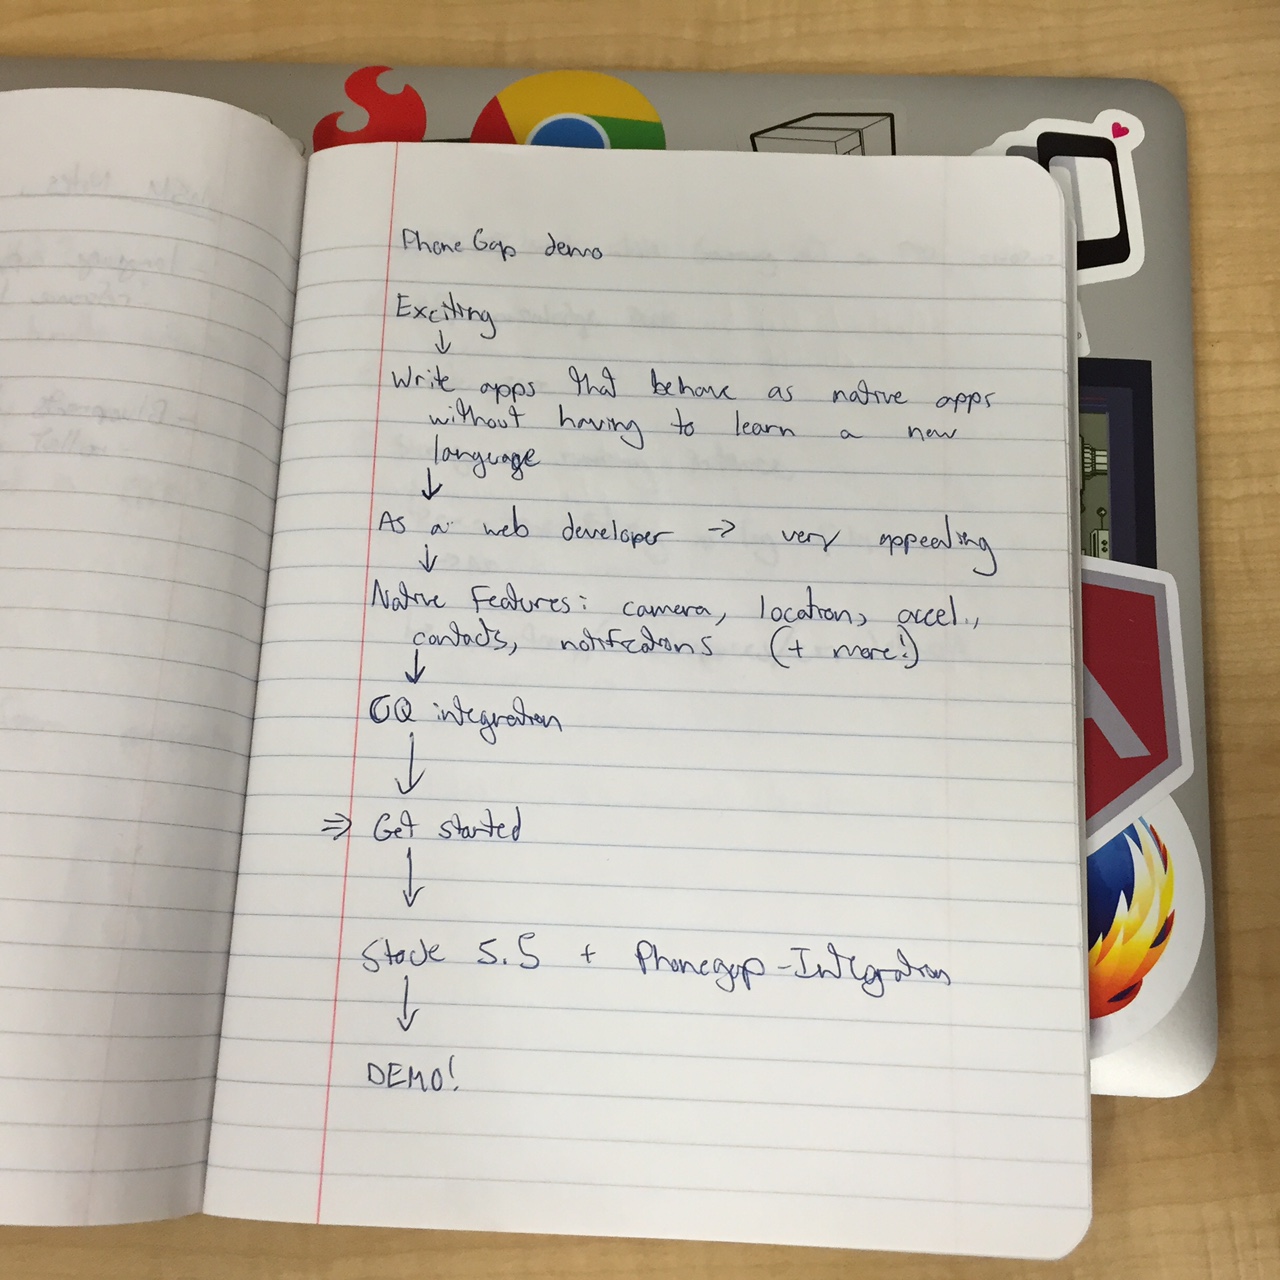 PhoneGap demo
Exciting
↓
Write apps that behave as native apps
without having to learn a new
language
↓
As a web developer → very appealing
↓
Native features: camera, location, accel.,
contacts, notifications (+ more!)
↓
CQ integration
↓
⇒ Get started
↓
5.5 + Phonegap-Integration
↓
DEMO!